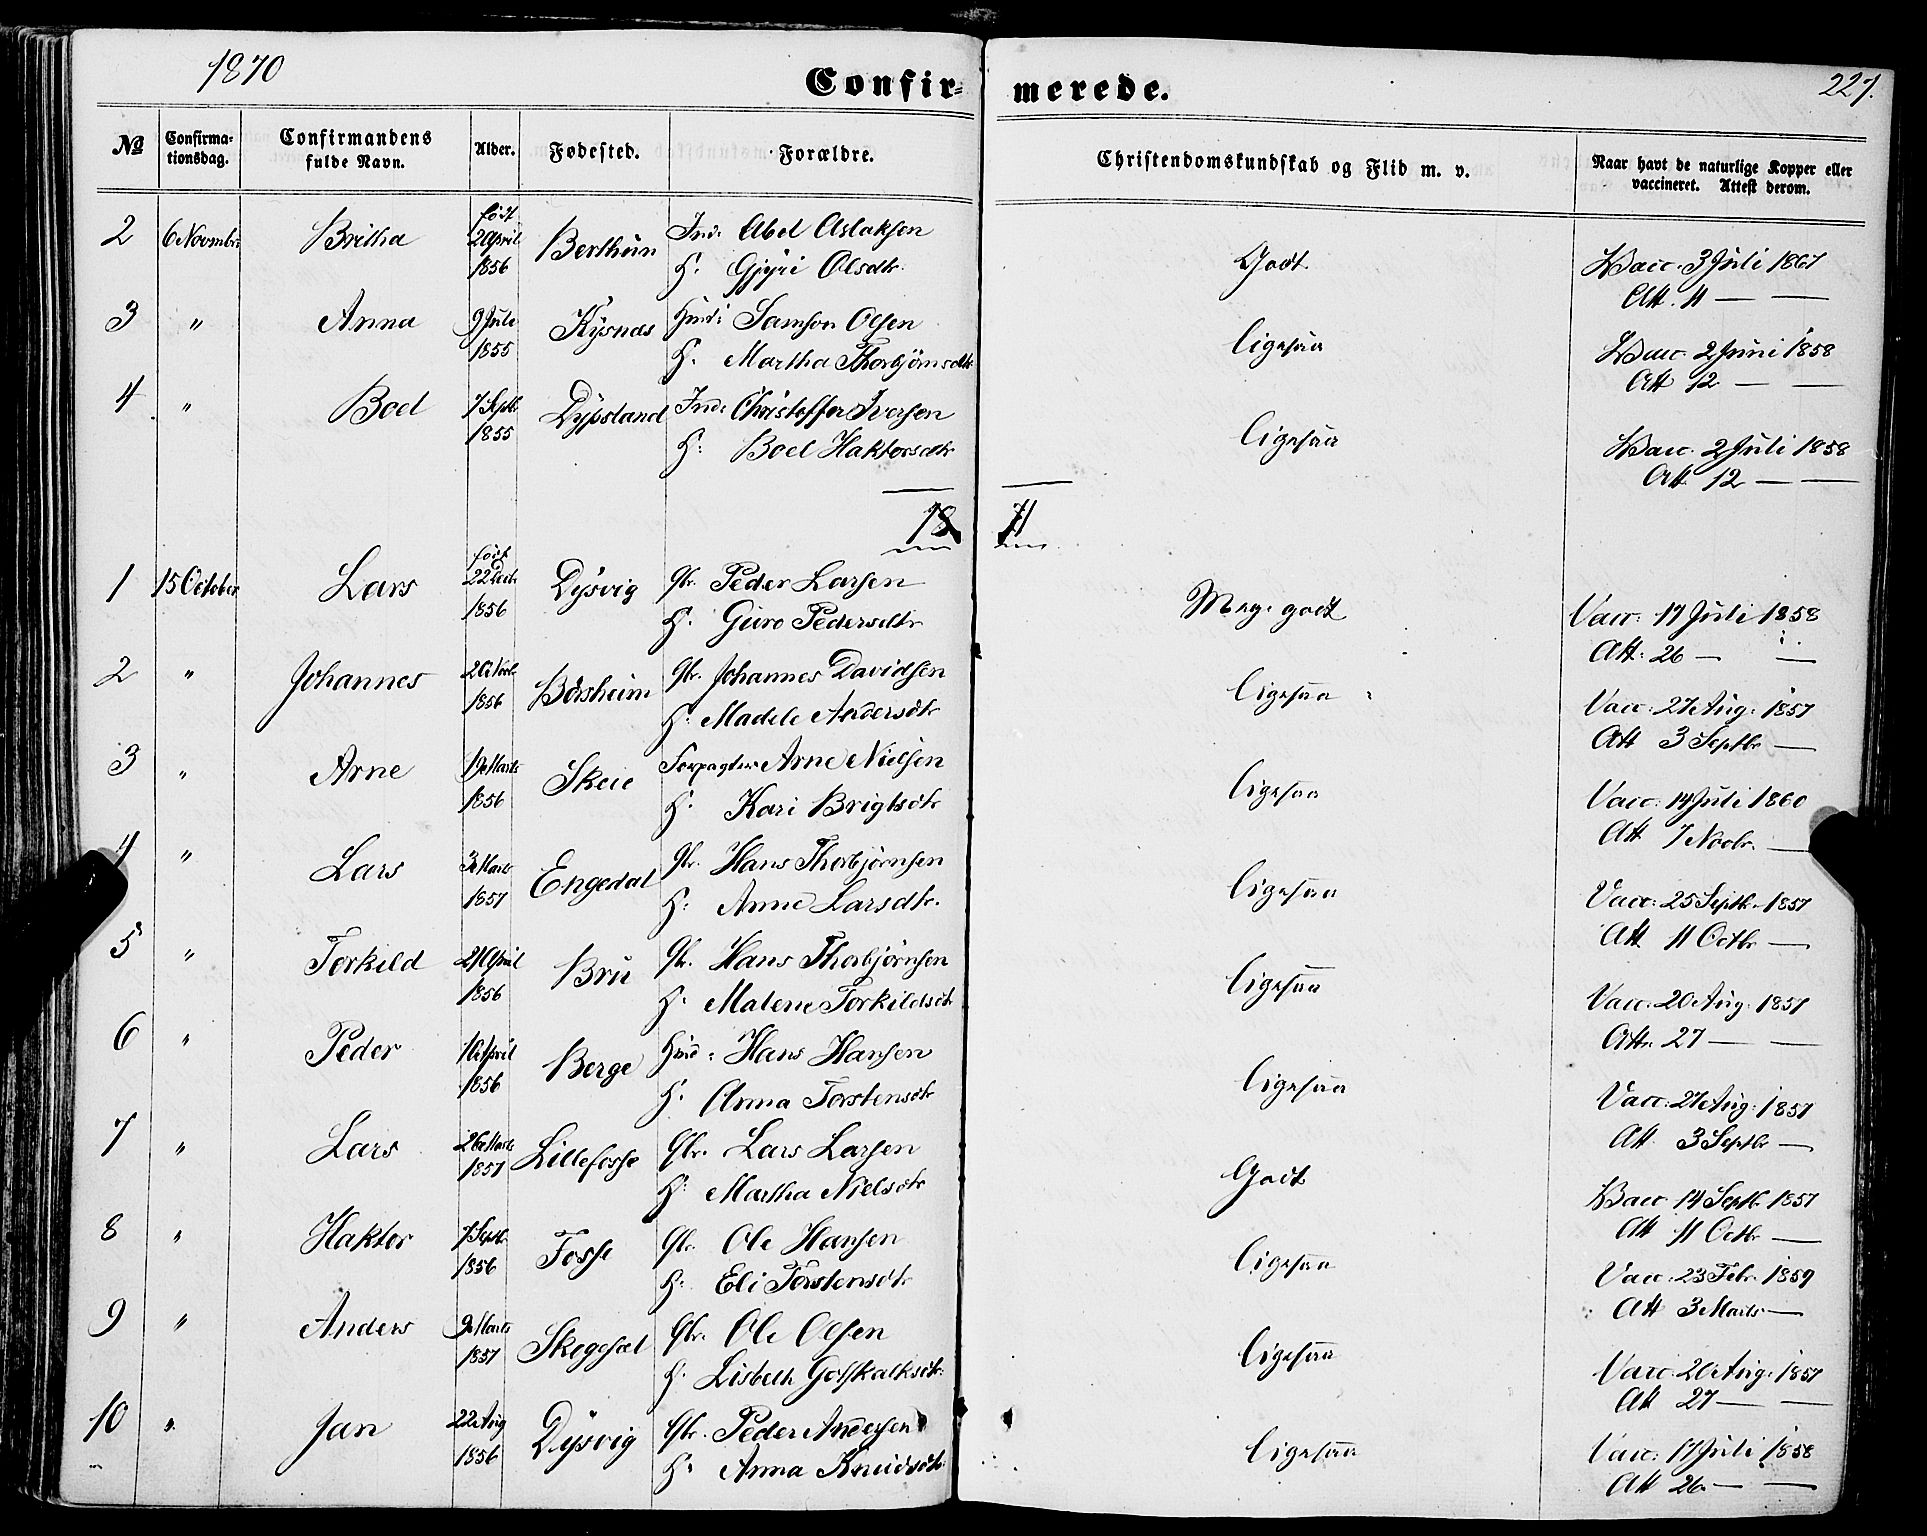 1870
Confirmerede.
227.
№ Confirmationsdag. Confirmandens fulde Navn. Alder. Fødested. Forældre. Christendomskundskab og Flid m. v. Naar havt de naturlige Kopper eller vaccineret. Attest derom.
2 6 Novembr Britha født 2 April 1856 Berthun Ind: Abel Aslaksen Godt Vacc. 3 Juli 1867
H: Gjyri Olsdtr. Att. 11 — —
3 " Anna 9 Juli 1855 Kysnæs Huusd: Samson Olsen Ligesaa Vacc. 2 Juni 1858
H. Martha Thorbjørnsdtr Att 12 — —
4 " Boel 7 Septb 1855 Dypsland Ind: Christoffer Iversen Ligesaa Vacc. 2 Juli 1858
H: Boel Haktorsdtr Att 12 — —
18 11
1 15 October Lars født 22 Decb 1856 Dysvig Gbr. Peder Larsen Meg. godt Vacc: 17 Juli 1858
H. Guro Pedersdtr Att: 26 — —
2 " Johannes 20 Novb 1856 Børsheim Gbr. Johannes Davidsen Ligesaa Vacc: 27 Aug: 1857
H: Madele Andersdtr Att 3 Septbr —
3 " Arne 19 Marts 1856 Skeie Forpagter Arne Nielsen Ligesaa Vacc: 14 Juli 1860
H. Kari Brigtsdtr Att 7 Novbr. —
4 " Lars 3 Marts 1857 Engedal Gbr. Hans Thorbjørnsen Ligesaa Vacc: 25 Septbr 1857
H: Anne Larsdtr. Att 11 Octbr —
5 " Torkild 21 April 1856 Bru Gbr. Hans Thorbjørnsen Ligesaa Vacc: 20 Aug: 1857
H. Malene Torkildsdtr Att. 27 — —
6 " Peder 16 April 1856 Berge Huusd: Hans Hansen Ligesaa Vacc: 27 Aug: 1857
H. Anna Torstensdtr Att. 3 Septbr —
7 " Lars 26 Marts 1857 Lillefosse Gbr. Lars Larsen Godt Vacc. 14 Septb. 1857
H: Martha Nielsdtr Att 11 Octbr —
8 " Haktor 7 Septbr 1856 Fosse Gbr. Ole Hansen Ligesaa Vacc: 23 Febr. 1859
H: Eli Torstensdtr Att 3 Marts —
9 " Anders 9 Marts 1857 Skogesæl Gbr. Ole Olsen Ligesaa Vacc: 20 Aug: 1857
H. Lisbeth Gotskalksdtr. Att 27 — —
10 " Jan 22 Aug 1856 Dysvig Gbr. Peder Andersen Ligesaa Vacc: 17 Juli 1858
H: Anna Knudsdtr. Att 26 — —